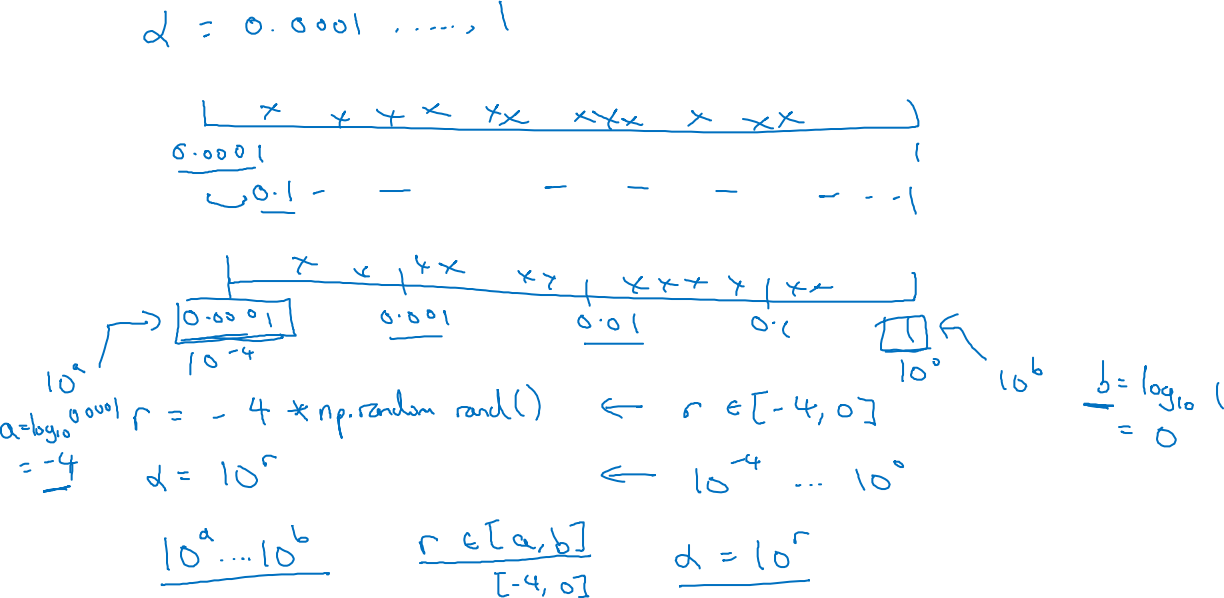 α = 0.0001 ....., 1
0.0001 1
0.1 - - - - - - - - 1
0.0001 0.001 0.01 0.1 1
10^-4 10^0
10^a 10^b
a=log₁₀0.0001 r = -4 * np.random rand() ← r ∈ [-4, 0] b = log₁₀ 1
= -4 = 0
α = 10^r ← 10^-4 ... 10^0
10^a ... 10^b r ∈ [a, b] α = 10^r
[-4, 0]